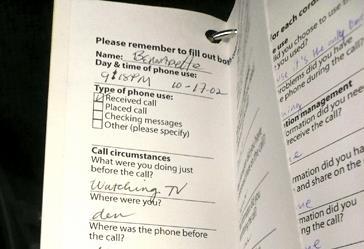 Please remember to fill out bot
Name: Bernadette
Day & time of phone use:
9:18PM 10-17-02
Type of phone use:
Received call
Placed call
Checking messages
Other (please specify)
Call circumstances
What were you doing just
before the call?
Watching TV
Where were you?
den
Where was the phone before
the call?
for each cord
e use
did you choose to use t
you used?
use it's the only
problems did you have
e phone during the call?
tion management
ormation did you need
receive the call?
rmation did you ha
and share on the
rmation did you
ng the call?